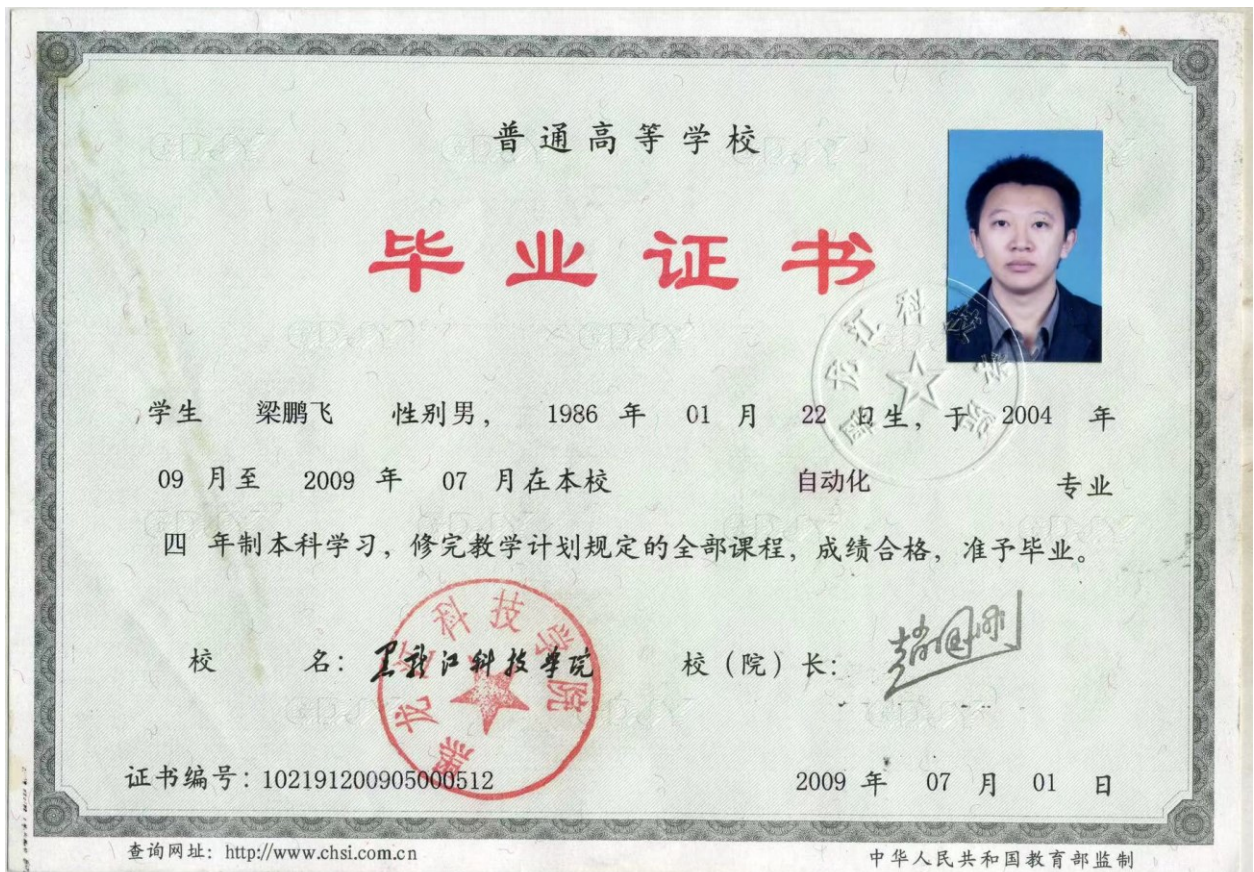 普通高等学校
毕业证书
学生 梁鹏飞 性别男， 1986 年 01 月 22 日生，于 2004 年
09 月至 2009 年 07 月在本校 自动化 专业
四 年制本科学习，修完教学计划规定的全部课程，成绩合格，准予毕业。
校 名：黑龙江科技学院 校（院）长：赵国刚
黑龙江科技学院
证书编号：102191200905000512 2009 年 07 月 01 日
查询网址：http://www.chsi.com.cn 中华人民共和国教育部监制